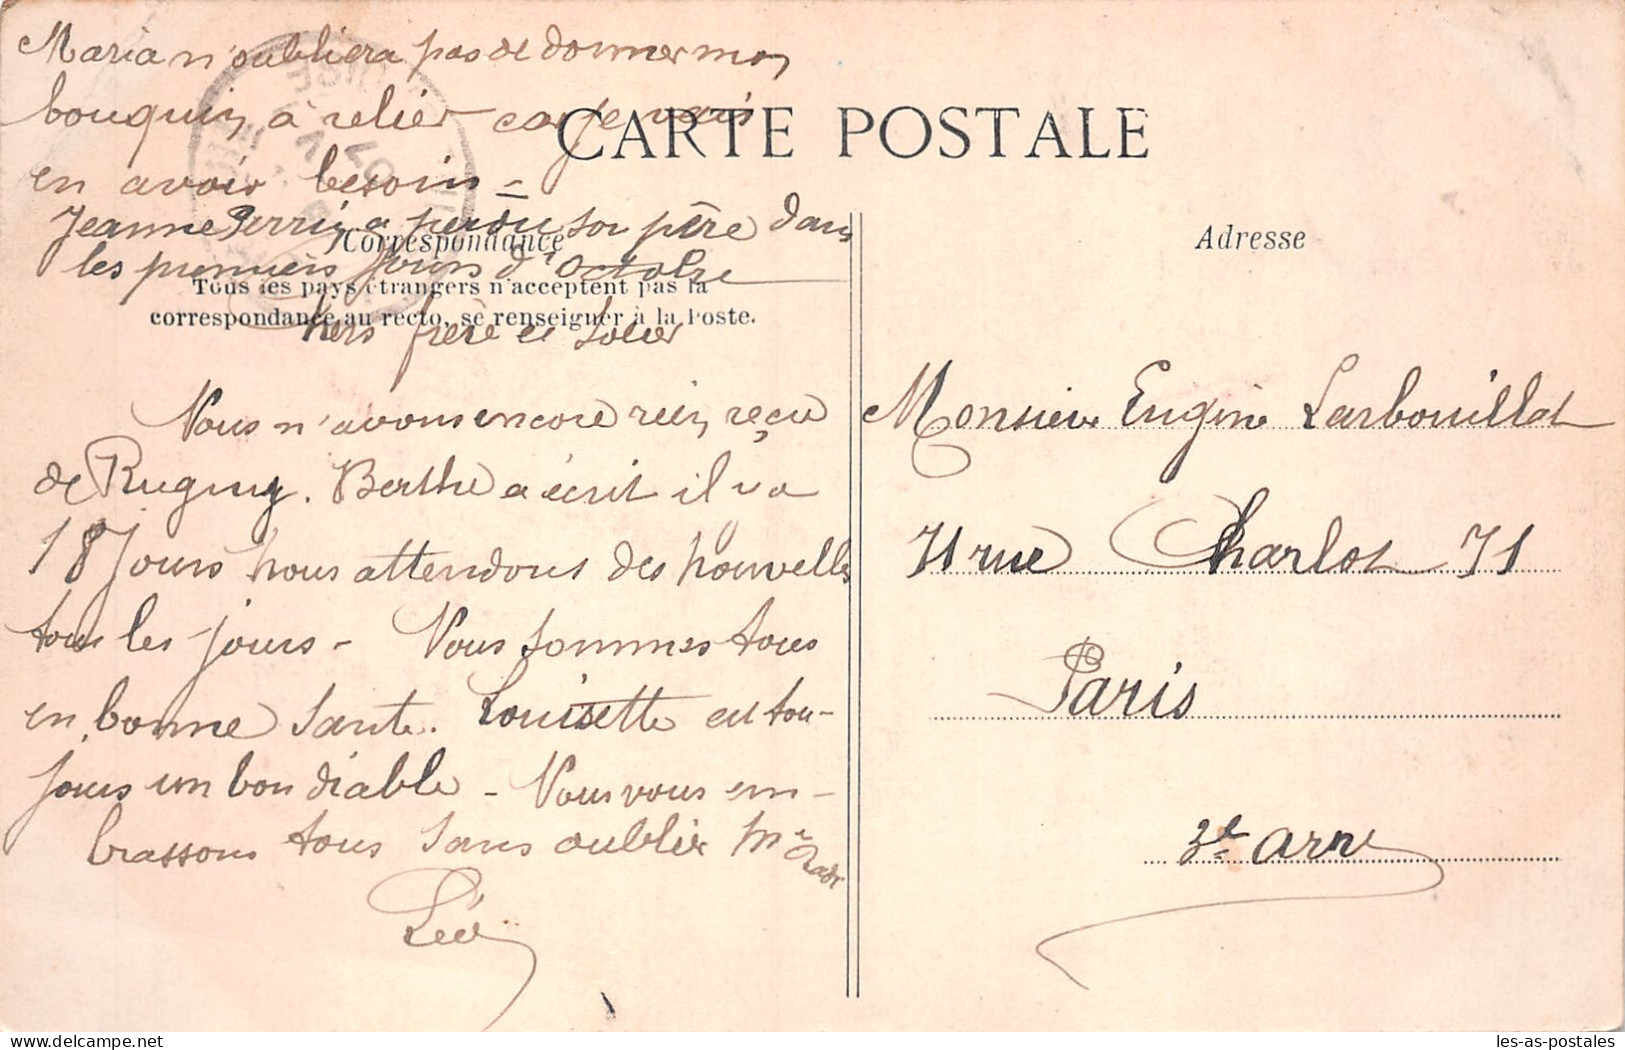 Maria n'oubliera pas de donner mon
bouquin à relier car je vais
en avoir besoin =
Jeanne Perrin a perdu son père dans
les premiers jours d'Octobre
frère et soeur
CARTE POSTALE
Correspondance
Tous les pays étrangers n'acceptent pas la
correspondance au recto, se renseigner à la Poste.
Nous n'avons encore rien reçu
de Rugny. Berthe a écrit il y a
18 jours nous attendons des nouvelles
tous les jours - Nous sommes tous
en bonne santé. Louisette est tou-
jours un bon diable - Nous vous em-
brassons tous sans oublier
Adresse
Monsieur Eugène Larbouillat
71 rue Charlot 71
Paris
3e arr
les-as-postales
www.delcampe.net